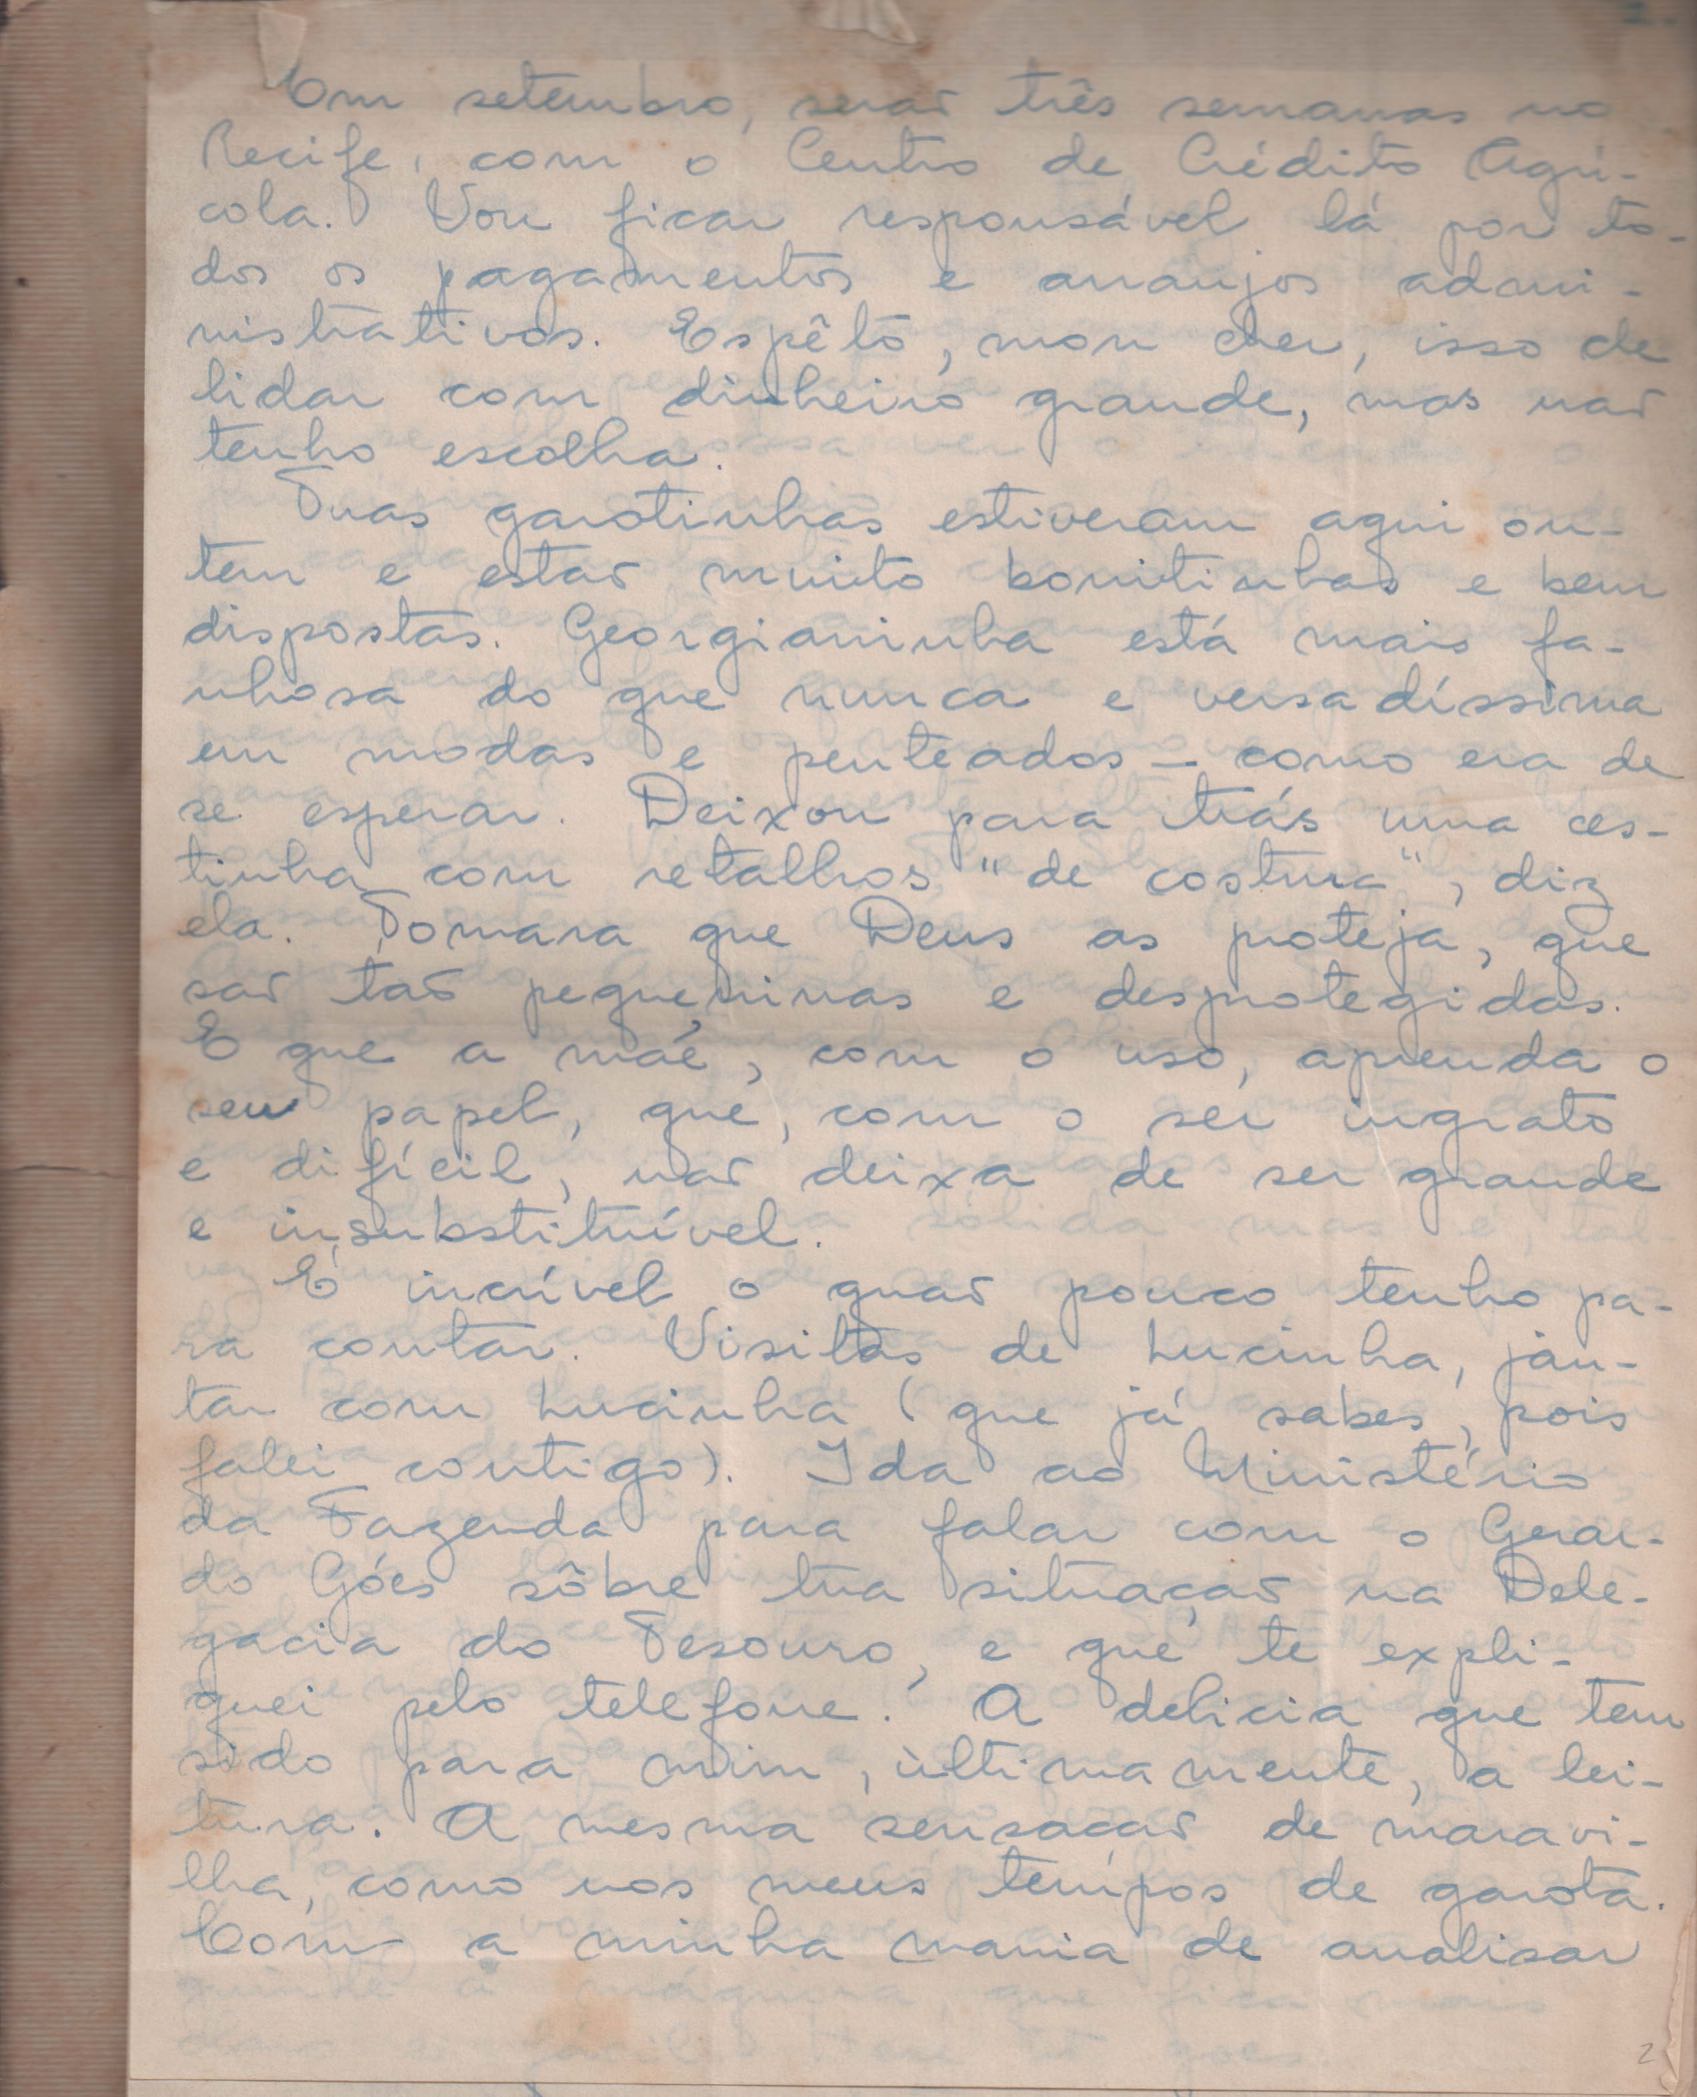 2.
Em setembro, serão três semanas no
Recife, com o Centro de Crédito Agrí-
cola. Vou ficar responsável lá por to-
dos os pagamentos e arranjos admi-
nistrativos. Espêto, mon cher, isso de
lidar com dinheiro grande, mas não
tenho escolha.
Tuas garotinhas estiveram aqui on-
tem e estão muito bonitinhas e bem
dispostas. Georgianinha está mais fa-
nhosa do que nunca e versadíssima
em modas e penteados — como era de
se esperar. Deixou para trás uma ces-
tinha com retalhos "de costura", diz
ela. Tomara que Deus as proteja, que
são tão pequeninas e desprotegidas.
E que a mãe, com o uso, aprenda o
seu papel, que, com o ser ingrato
e difícil, não deixa de ser grande
e insubstituível.
É incrível o quão pouco tenho pa-
ra contar. Visitas de Lucinha, jan-
tar com Lucinha (que já sabes, pois
falei contigo). Ida ao Ministério
da Fazenda para falar com o Gerar-
do Góes sôbre tua situação na Dele-
gacia do Tesouro, e que te expli-
quei pelo telefone. A delicia que tem
sido para mim, ùltimamente, a lei-
tura. A mesma sensação de maravi-
lha, como nos meus tempos de garota.
Com a minha mania de analisar
2